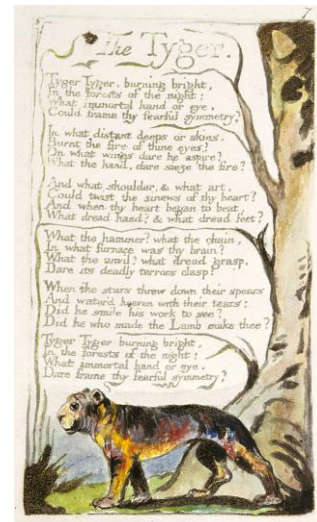 7
The Tyger.
Tyger Tyger, burning bright,
In the forests of the night;
What immortal hand or eye,
Could frame thy fearful symmetry?
In what distant deeps or skies.
Burnt the fire of thine eyes?
On what wings dare he aspire?
What the hand, dare sieze the fire?
And what shoulder, & what art,
Could twist the sinews of thy heart?
And when thy heart began to beat,
What dread hand? & what dread feet?
What the hammer? what the chain,
In what furnace was thy brain?
What the anvil? what dread grasp,
Dare its deadly terrors clasp?
When the stars threw down their spears
And water'd heaven with their tears:
Did he smile his work to see?
Did he who made the Lamb make thee?
Tyger Tyger burning bright,
In the forests of the night:
What immortal hand or eye,
Dare frame thy fearful symmetry?